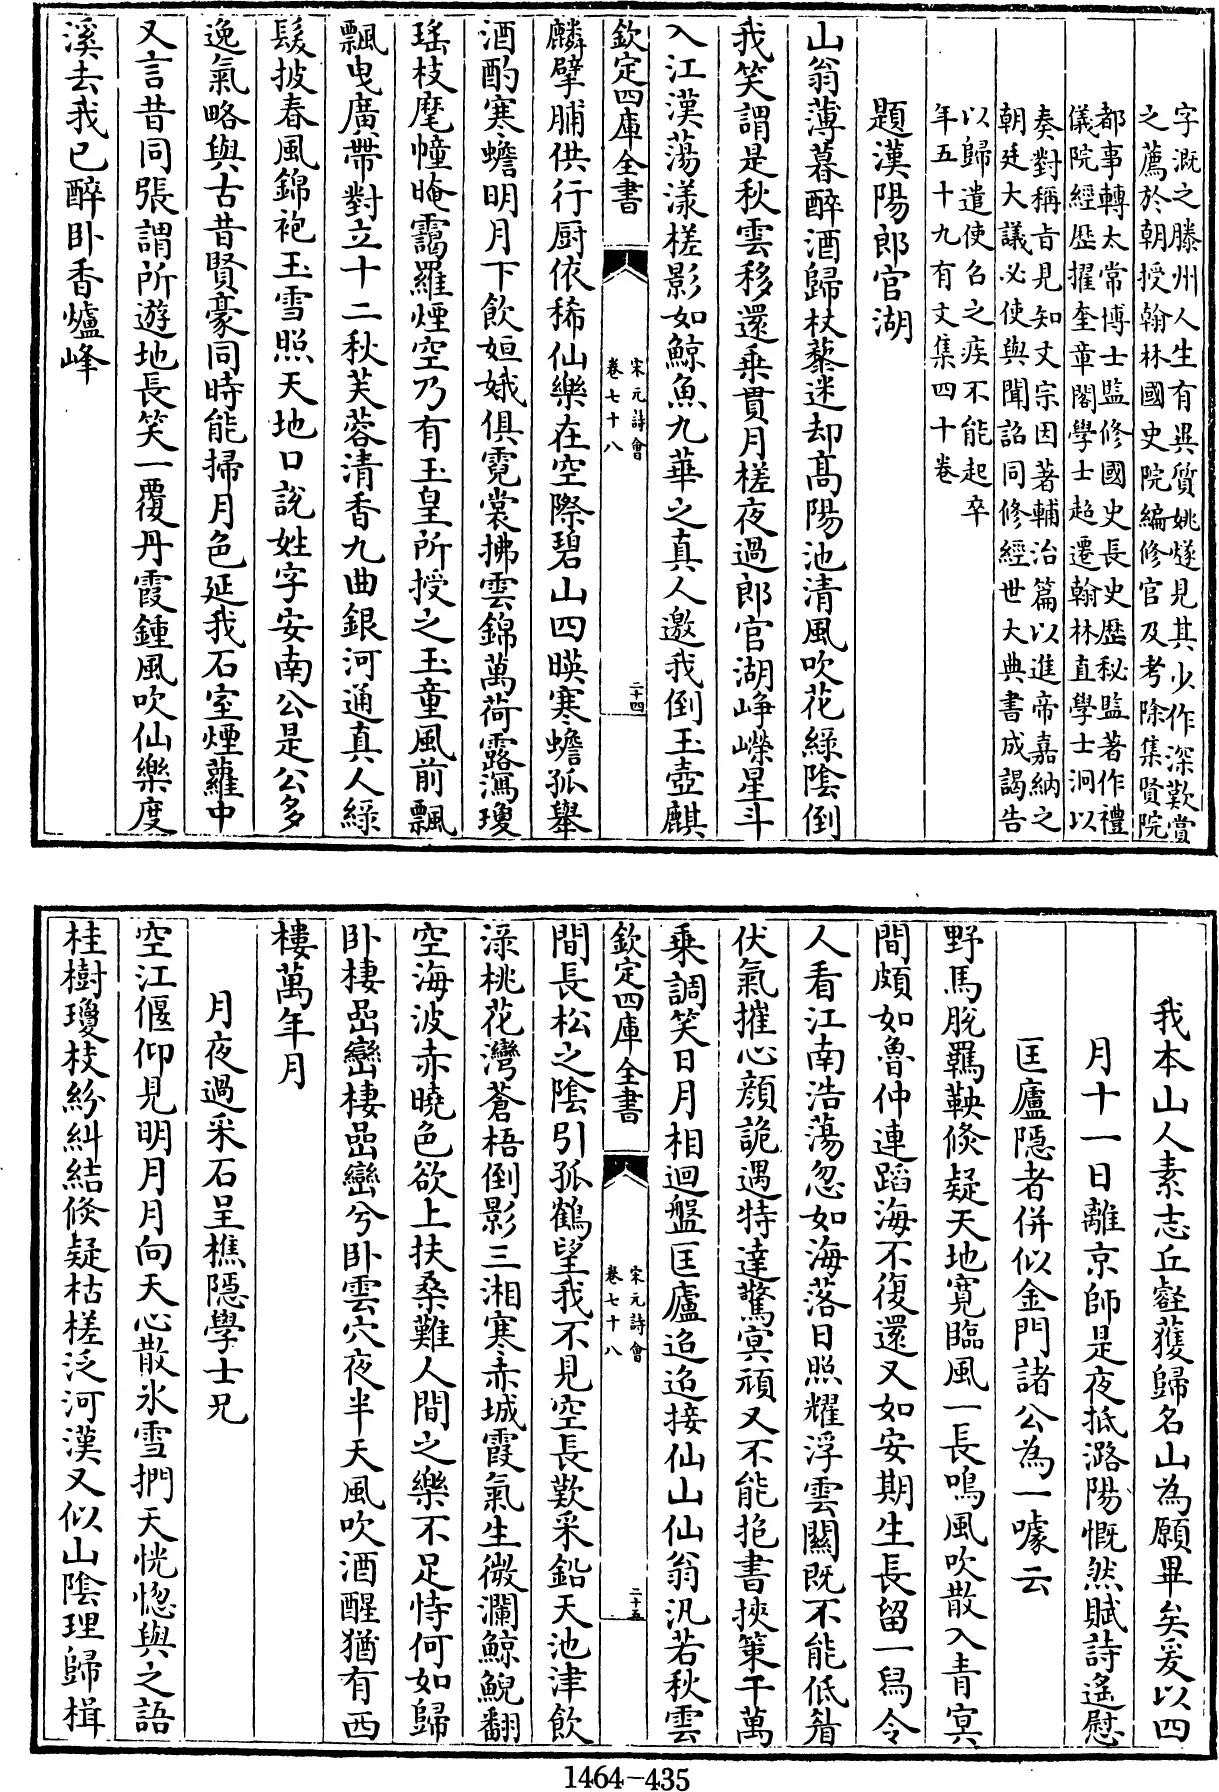 字溉之滕州人生有異質姚燧見其少作深歎賞
之薦於朝授翰林國史院編修官及考除集賢院
都事轉太常博士監修國史長史歷秘監著作禮
儀院經歷擢奎章閣學士超遷翰林直學士泂以
奏對稱旨見知文宗因著輔治篇以進帝嘉納之
朝廷大議必使與聞詔同修經世大典書成謁告
以歸遣使召之疾不能起卒
年五十九有文集四十卷
題漢陽郎官湖
山翁薄暮醉酒歸杖藜迷却髙陽池清風吹花緑陰倒
我笑謂是秋雲移還乗貫月槎夜過郎官湖崢嶸星斗
入江漢蕩漾槎影如鯨魚九華之真人邀我倒玉壺麒
欽定四庫全書
宋元詩會
卷七十八
二十四
麟擘脯供行厨依稀仙樂在空際碧山四暎寒蟾孤舉
酒酌寒蟾明月下飲姮娥俱霓裳拂雲錦萬荷露瀉瓊
瑤枝麾幢晻靄羅煙空乃有玉皇所授之玉童風前飄
飄曳廣帶對立十二秋芙蓉清香九曲銀河通真人緑
髮披春風錦袍玉雪照天地口説姓字安南公是公多
逸氣略與古昔賢豪同時能掃月色延我石室煙蘿中
又言昔同張謂所遊地長笑一覆丹霞鍾風吹仙樂度
溪去我已醉卧香爐峰
我本山人素志丘壑獲歸名山為願畢矣爰以四
月十一日離京師是夜抵潞陽慨然賦詩遙慰
匡廬隠者併似金門諸公為一噱云
野馬脫羈鞅倏疑天地寛臨風一長鳴風吹散入青㝠
間頗如魯仲連蹈海不復還又如安期生長留一舄令
人看江南浩蕩忽如海落日照耀浮雲闗既不能低眉
伏氣摧心顔詭遇特達驚㝠頑又不能抱書挾䇿干萬
乗調笑日月相迴盤匡廬迢迢接仙山仙翁汎若秋雲
欽定四庫全書
宋元詩會
卷七十八
二十五
間長松之隂引孤鶴望我不見空長歎采鉛天池津飲
渌桃花灣蒼梧倒影三湘寒赤城霞氣生微瀾鯨鯢翻
空海波赤曉色欲上扶桑難人間之樂不足恃何如歸
卧棲碞巒棲碞巒兮卧雲穴夜半天風吹酒醒猶有西
樓萬年月
月夜過采石呈樵隱學士兄
空江偃仰見明月月向天心散氷雪捫天恍惚與之語
桂樹瓊枝紛糾結倏疑枯槎泛河漢又似山隂理歸楫
1464-435